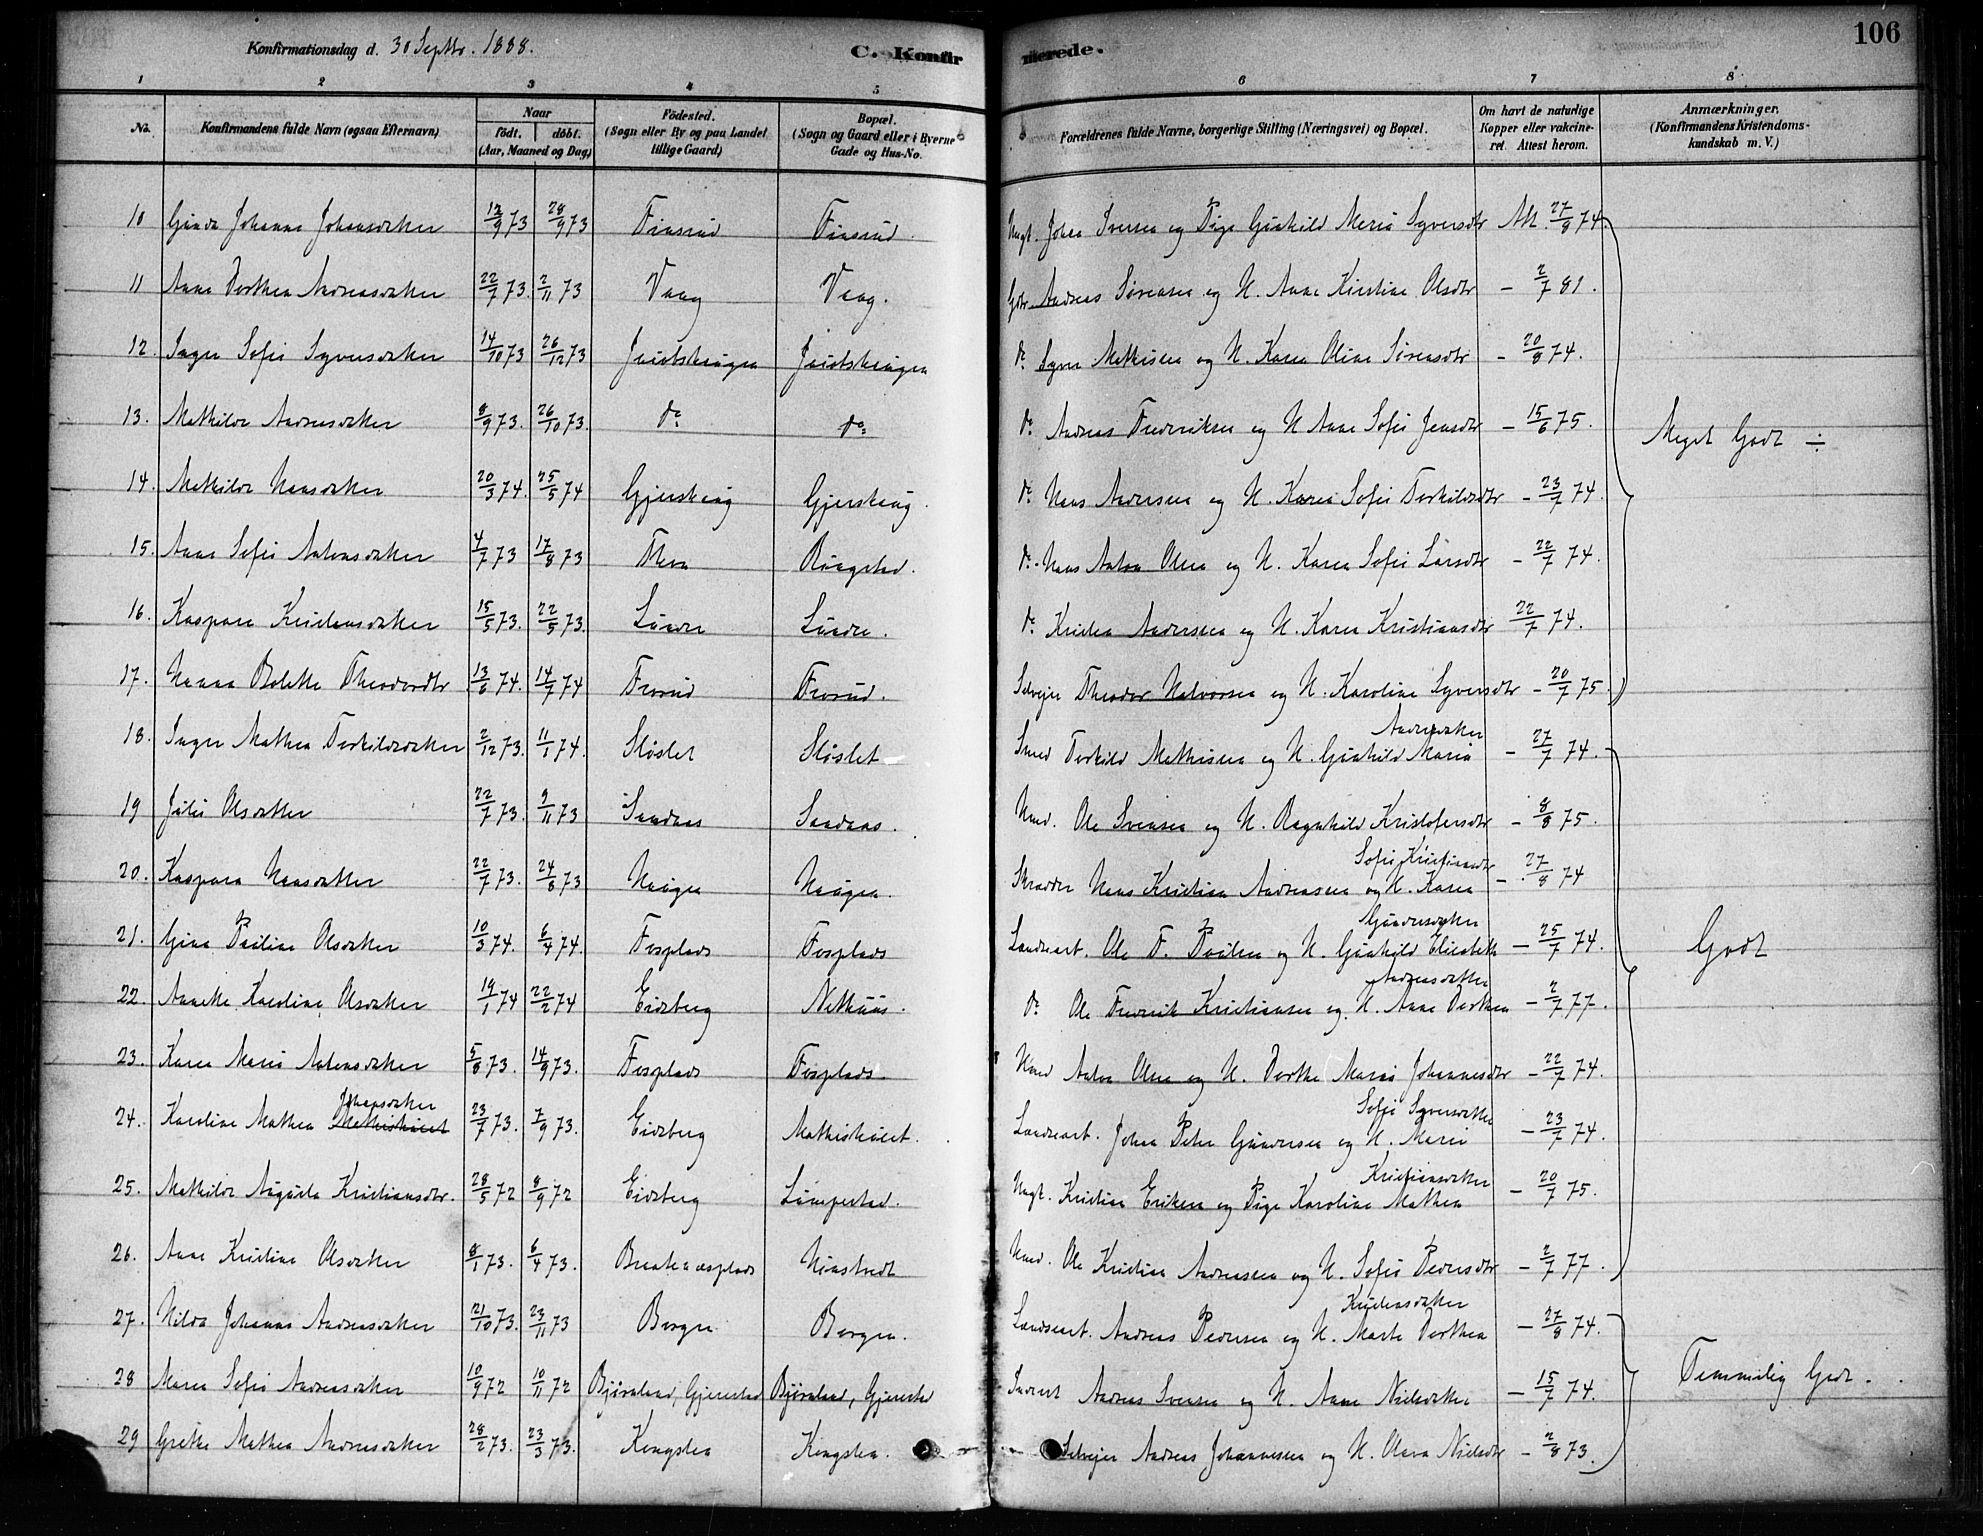 106
Konfirmationsdag d. 30 Septbr. 1888.
C. Konfirmerede.
1 2 3 4 5 6 7 8
No.
Konfirmandens fulde Navn (ogsaa Efternavn)
Naar
födt. döbt.
(Aar, Maaned og Dag)
Födested.
(Sogn eller By og paa Landet
tillige Gaard)
Bopæl.
(Sogn og Gaard eller i Byerne
Gade og Hus-No.
Forældrenes fulde Navne, borgerlige Stilling (Næringsvei) og Bopæl.
Om havt de naturlige
Kopper eller vakcine-
ret. Attest herom.
Anmærkninger.
(Konfirmandens Kristendoms-
kundskab m. V.)
10 Johanna 12/9 73 28/9 73 Finsrud Finsrud. Ungk. Johan Iversen og Pige Gunhild Maria Syversdtr 27/8 74.
11 Anna Dorthea Andreasdatter 22/7 73. 2/11 73 Vaag Vaag. Andreas Sørensen og H. Anne Kirstine Olsdtr – 2/7 81.
12. Inger Sofie Syversdatter 14/10 73 26/12 73 do Syver Mathisen og H. Karen Oline Sørensdtr – 20/8 74.
13. Mathilde Andreasdatter 8/9 73. 26/10 73. do do do Andreas Frederiksen og H Anne Sofie Jensdtr – 15/6 75.
Meget Godt ÷
14. Mathilde Hansdatter 20/3 74. 25/5 74 Gjerskaug Gjerskaug. do Hans Andersen og H. Karen Sofie Terkildsdtr – 23/7 74.
15. Anne Sofie Antonsdatter 4/7 73 17/8 73 Ringstad. do Hans Anton Olsen og H. Karen Sofie Larsdtr – 22/7 74.
16. Kaspara Kristensdatter 15/5 73. 22/5 73. Lunde Lunde. do Kristen Andersen og H. Karen Kristiansdtr 22/7 74.
17. Hanna Bolette Theodordtr 13/6 74. 14/7 74 Frorud Frorud. Selveier Theodor Halvorsen og H. Karoline Syversdtr – 20/7 75.
18. Inger Mathea Terkildsdatter 2/12 73. 11/1 74. Sløslet Sløslet Andersdatter
Smed Terkild Mathisen og H. Gunhild Maria – 27/7 74.
19 Julie Olsdatter 22/7 73. 9/11 73 Sandaas Sandaas. Hmd. Ole Svensen og H. Ragnhild Kristofersdtr – 8/8 75.
20. Kaspara Hansdatter 22/7 73. 24/8 73 Haugen Haugen. Sofie Kristiansdtr
Skrædder Hans Kristian Andreassen og H. Karen – 27/8 74
21. Gina Pauline Olsdatter 10/3 74. 6/4 74. Fosplads Fosplads Gundersdatter
Landseart. Ole F. Paulsen og H. Gunhild Elisabeth – 25/7 74.
Godt
22. Anette Karoline Olsdatter 19/1 74 22/2 74 Eidsberg Nethuus. Andreasdatter
do Ole Fredrik Kristiansen og H. Anne Dorthea – 2/7 77.
23. Karen Marie Antonsdatter 5/8 73. 14/9 73. Fosplads Fosplads. Hmd Anton Olsen og H. Dorthe Maria Johannesdtr – 22/7 74.
24. Karoline Mathea Johansdatter 23/7 73. 7/9 73. Eidsberg Sofie Syversdatter
Landseart. Johan Peter Gundersen og H. Maria – 23/7 74.
25. Mathilde Augusta Kristiansdtr. 28/5 72 8/9 72 Eidsberg Kristiansdatter
Ungk. Kristian Eriksen og Pige Karoline Mathea – 20/7 75.
26. Anne Kristine Olsdatter 8/1 73. 6/4 73. Hmd. Ole Kristian Andreassen og H. Sofie Pedersdtr – 2/7 77.
27. Hilda Johanna Andreasdatter 21/10 73. 23/11 73 Borgen Borgen. Kristensdatter
Landseart. Andreas Pedersen og H. Marte Dorthea – 27/8 74.
28 Maren Sofie Andreasdatter 10/9 72 10/11 72 Bjørnland, Gjerestad Bjørnland, Gjerestad Andreas Svensen og H. Anne Nielsdatter – 15/7 74.
Temmelig Godt.
29 Grethe Mathea Andreasdatter 28/2 73. 23/3 73. Kongslen Kongslen. Selveier Andreas Johannessen og H. Olava Nielsdtr – 2/8 73.